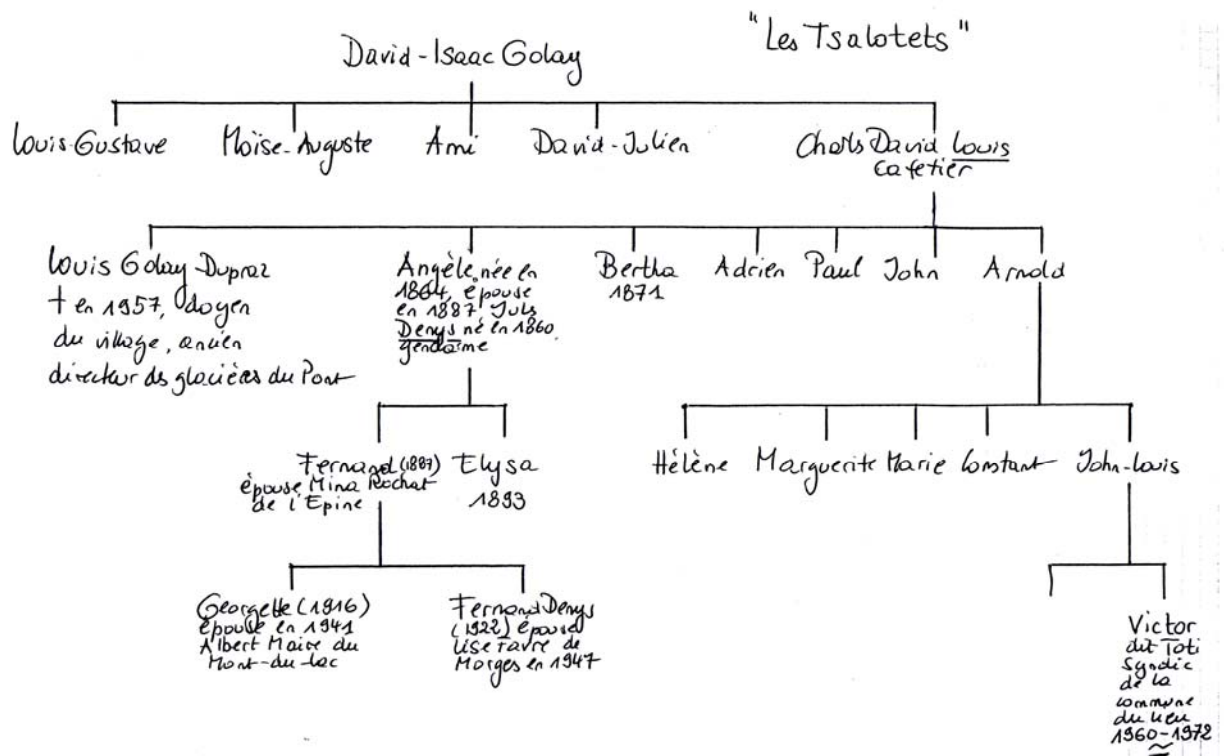 "Les Tsalotets"
David-Isaac Golay
Louis-Gustave
Moïse-Auguste
Ami
David-Julien
Charls David Louis
Cafetier
Louis Golay-Dupraz
† en 1957, doyen
du village, ancien
directeur ds glacières du Pont
Angèle, née en
1864, épouse
en 1887, Juls
Denys né en 1860,
gendarme
Bertha
1871
Adrien
Paul
John
Arnold
Fernand (1887)
épouse Mina Rochat
de l'Epine
Elysa
1893
Hélène
Marguerite
Marie
Constant
John-Louis
Georgette (1916)
épouse en 1941
Albert Maire du
Mont-du-Lac
Fernand Denys
(1922) épouse
Lise Favre de
Morges en 1947
Victor
dit Toti
Syndic
de la
commune
du Lieu
1960-1972